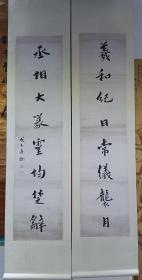 羲和紀日常儀襲月
丞相大篆靈均楚辭